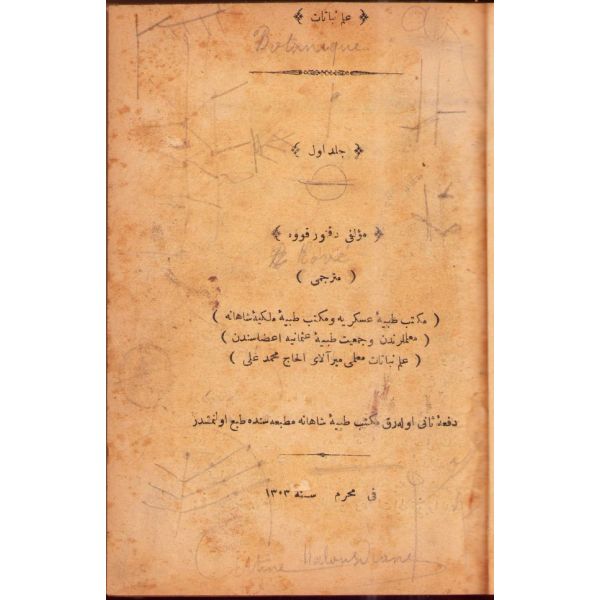 ﴿ علم نباتات ﴾
Botanique
﴿ جلد اول ﴾
﴿ مؤلفی دقتور قووه ﴾
( مترجمی )
( مكتب طبیهٔ عسكریه و مكتب طبیهٔ ملكیهٔ شاهانه )
( معلملرندن و جمعیت طبیهٔ عثمانیه اعضاسندن )
( علم نباتات معلمی میرآلای الحاج محمد علی )
دفعهٔ ثانی اوله‌رق مكتب طبیهٔ شاهانه مطبعه‌سنده طبع اولنمشدر
فی محرم سنه ١٣٠٣